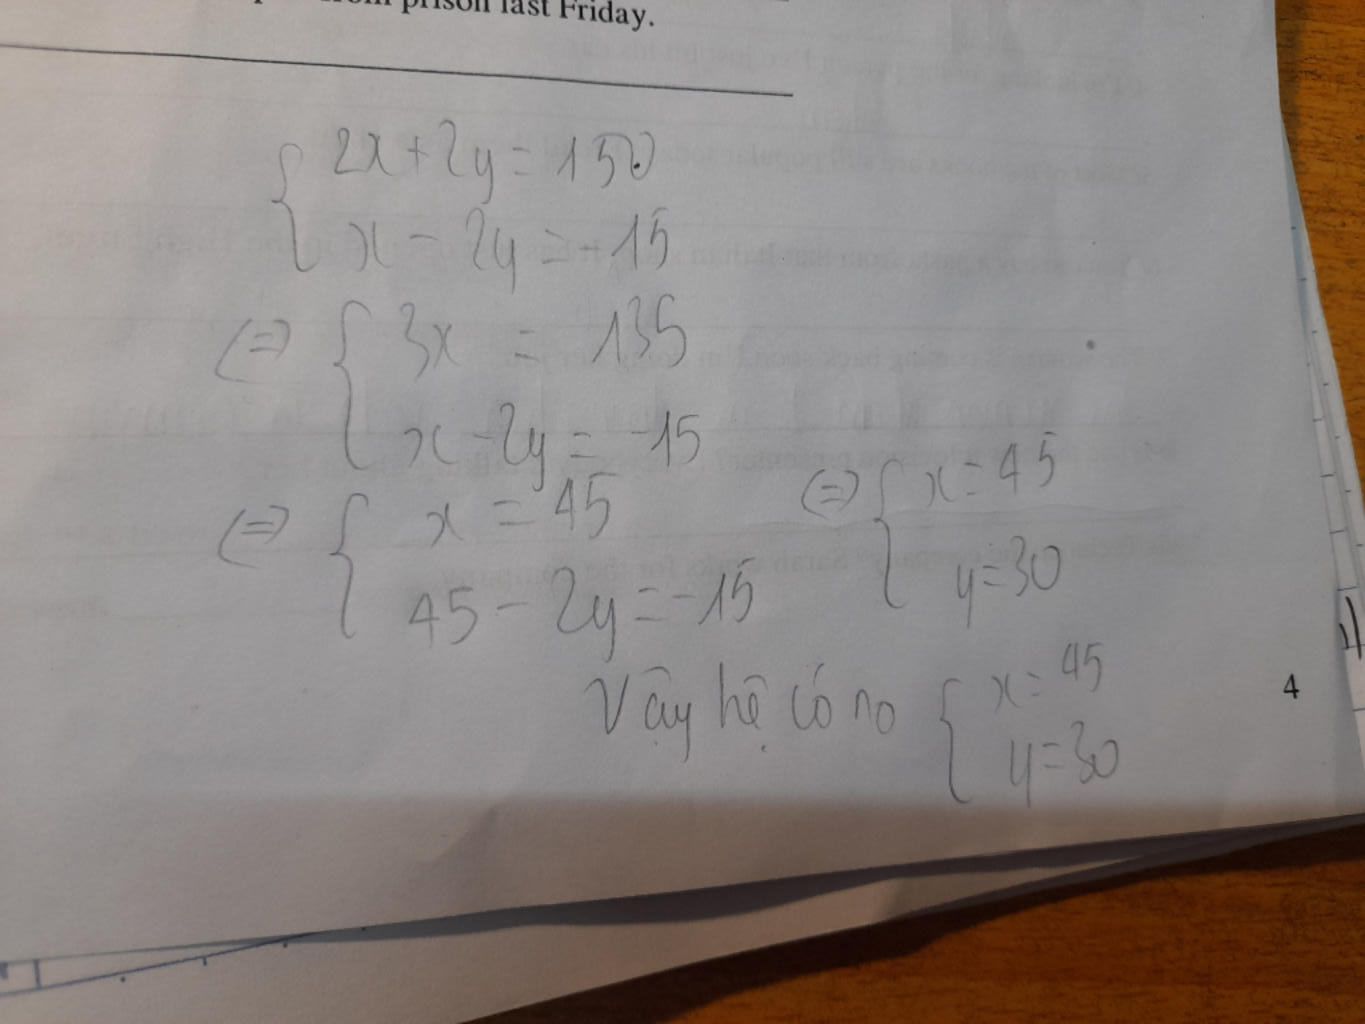 from prison last Friday.
2x + 2y = 150
x - 2y = -15
(=) 3x = 135
x - 2y = -15
(=) x = 45
45 - 2y = -15
(=) x = 45
y = 30
Vậy hệ có no x = 45
y = 30
4